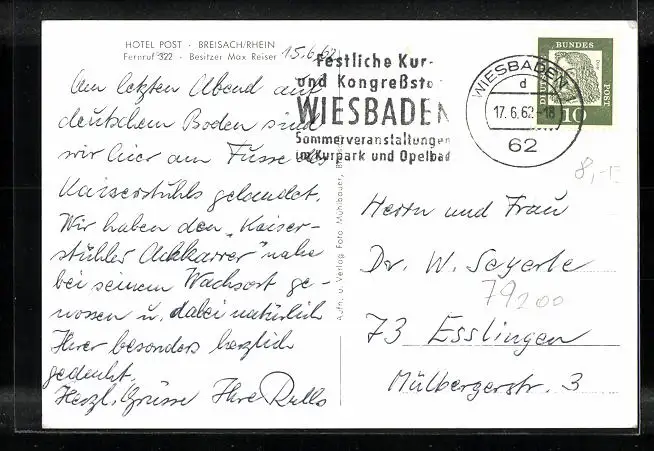 HOTEL POST · BREISACH/RHEIN
Fernruf 322 · Besitzer Max Reiser
15.6.62
Am letzten Abend auf
deutschem Boden sind
wir hier am Fusse des
Kaiserstuhls gelandet.
Wir haben den „Kaiser-
stühler Achkarrer" nahe
bei seinem Wachsort ge-
nossen u. dabei natürlich
Ihrer besonders herzlich
gedacht.
Herzl. Grüsse Ihre
Aufn. u. Verlag Foto Mühlbauer,
Festliche Kur-
und Kongreßsta
WIESBADEN
Sommerveranstaltungen
im Kurpark und Opelbad
WIESBADEN
d
17.6.62-18
62
DEUTSCHE
BUNDES
POST
10
8,-
Herrn und Frau
Dr. W. Seyerle
79200
73 Esslingen
Mülbergerstr. 3